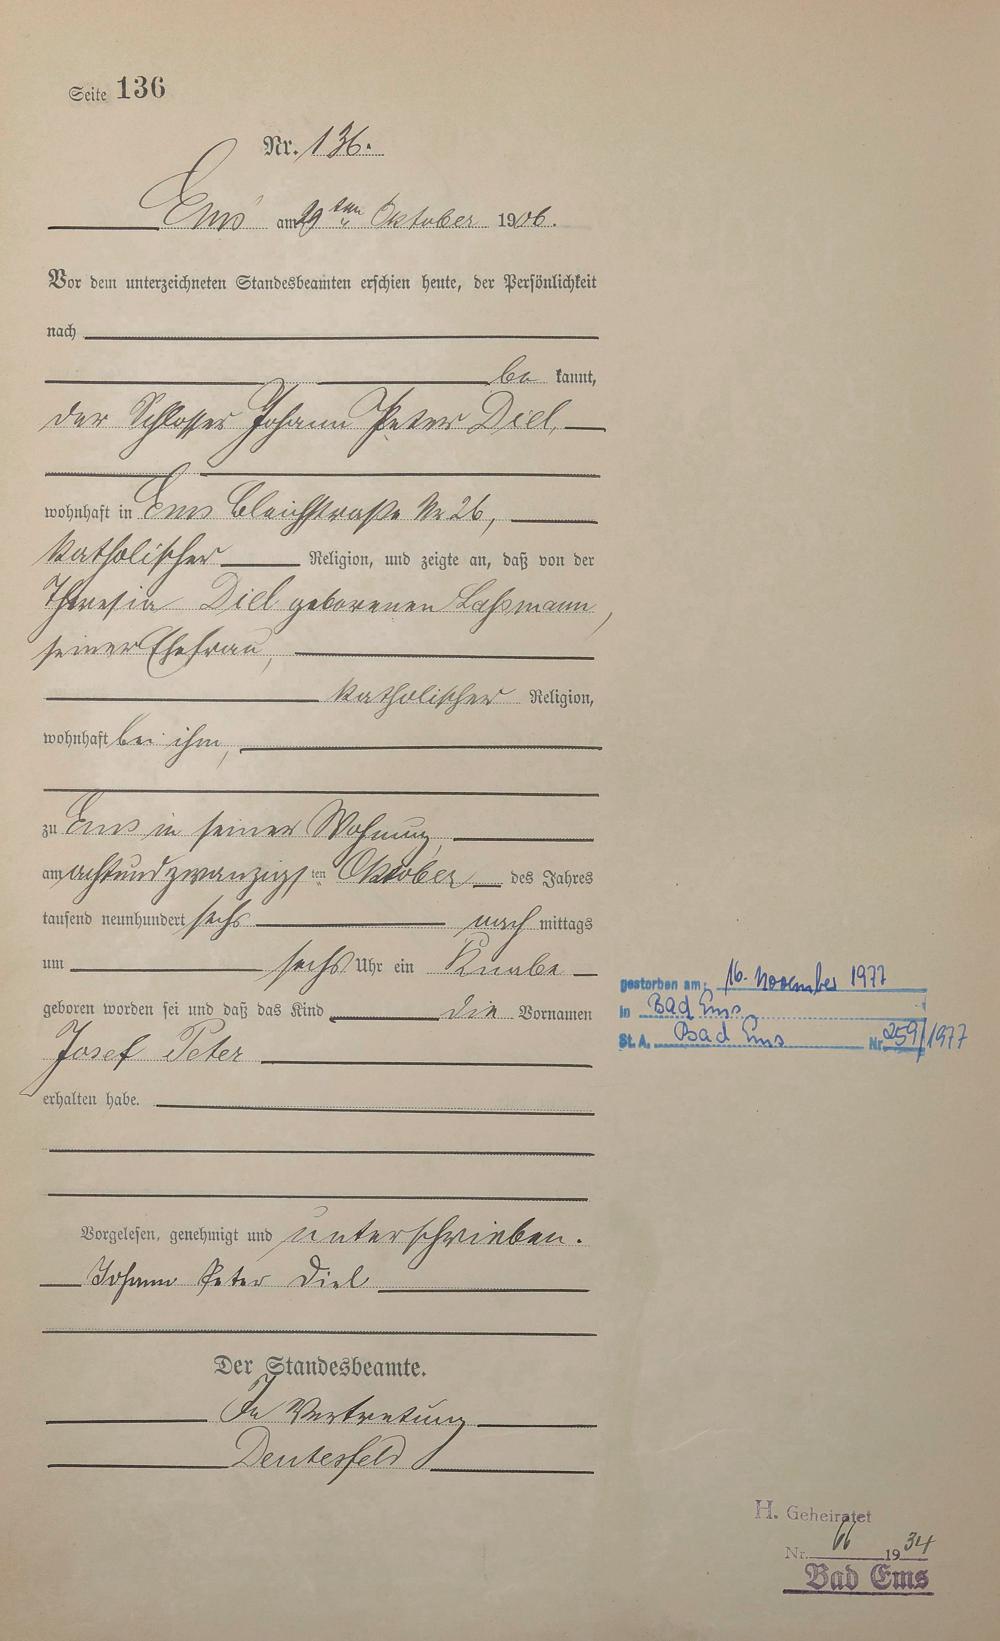 Seite 136
Nr. 136.
Ems am 29ten Oktober 1906.
Vor dem unterzeichneten Standesbeamten erschien heute, der Persönlichkeit
nach
be kannt,
der Schlosser Johann Peter Diel,
wohnhaft in Ems Bleichstraße Nr 26,
katholischer Religion, und zeigte an, daß von der
Theresia Diel geborenen Laßmann,
seiner Ehefrau,
katholischer Religion,
wohnhaft bei ihm,
zu Ems in seiner Wohnung,
am achtundzwanzigsten Oktober des Jahres
tausend neunhundert sechs nach mittags
um sechs Uhr ein Knabe
geboren worden sei und daß das Kind die Vornamen
Josef Peter
erhalten habe.
gestorben am: 16. November 1977
in Bad Ems
St. A. Bad Ems Nr. 259/1977
Vorgelesen, genehmigt und unterschrieben.
Johann Peter Diel
Der Standesbeamte.
In Vertretung
H. Geheiratet
Nr. 66 1934
Bad Ems